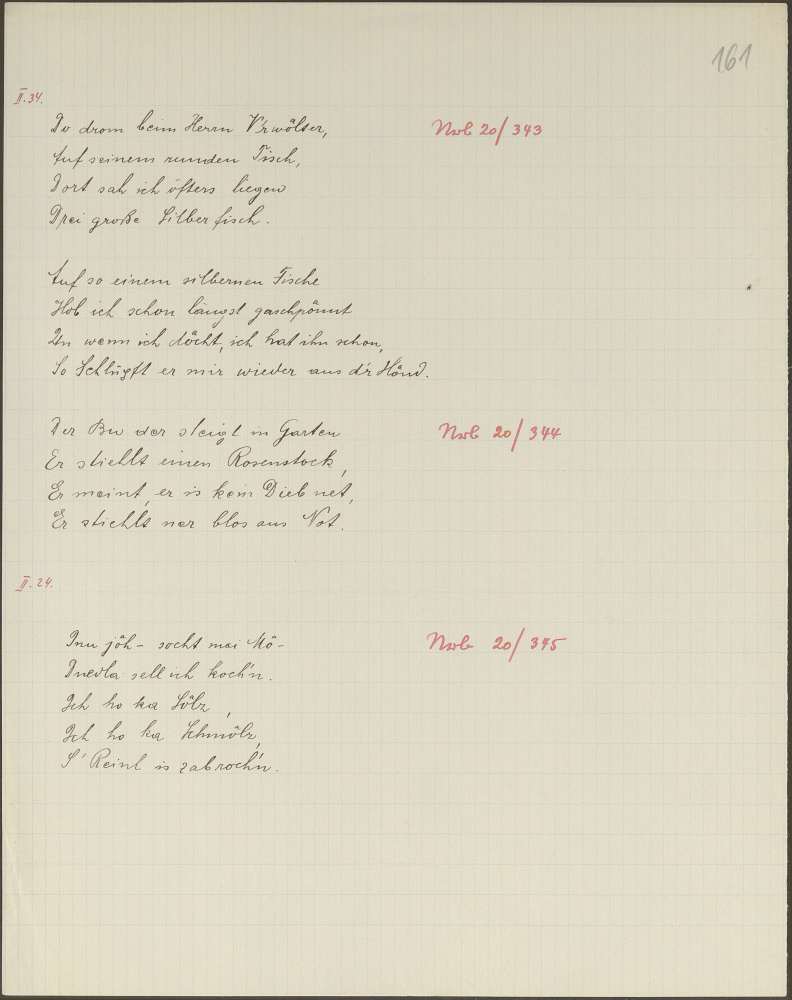 161
II.34.
Do drom beim Herrn V'rwölter, Nwb 20/343
Auf seinem runden Tisch,
Dort sah ich öfters liegen
Drei große Silberfisch.
Auf so einem silbernen Fische
Hob ich schon längst gaschpönnt
Un wenn ich döcht, ich hat ihn schon,
So Schlüpft er mir wieder aus d'r Hönd.
Der Bu der steigt in Garten Nwb 20/344
Er stiehlt einen Rosenstock,
Er meint, er is kein Dieb net,
Er stiehlt ner blos aus Not.
II.24.
jöh- socht mei Mö- Nwb 20/345
sell ich koch'n.
Ich ho ka Sölz,
Ich ho ka Schmölz,
S' Reinl is zabroch'n.